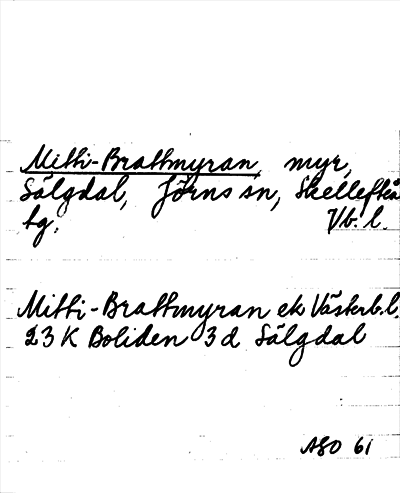 Mitti-Brattmyran, myr,
Sälgdal, Jörns sn, Skellefteå
tg. Vb. l.
Mitti-Brattmyran ek Västerb.l.
23 K Boliden 3 d Sälgdal
AGO 61